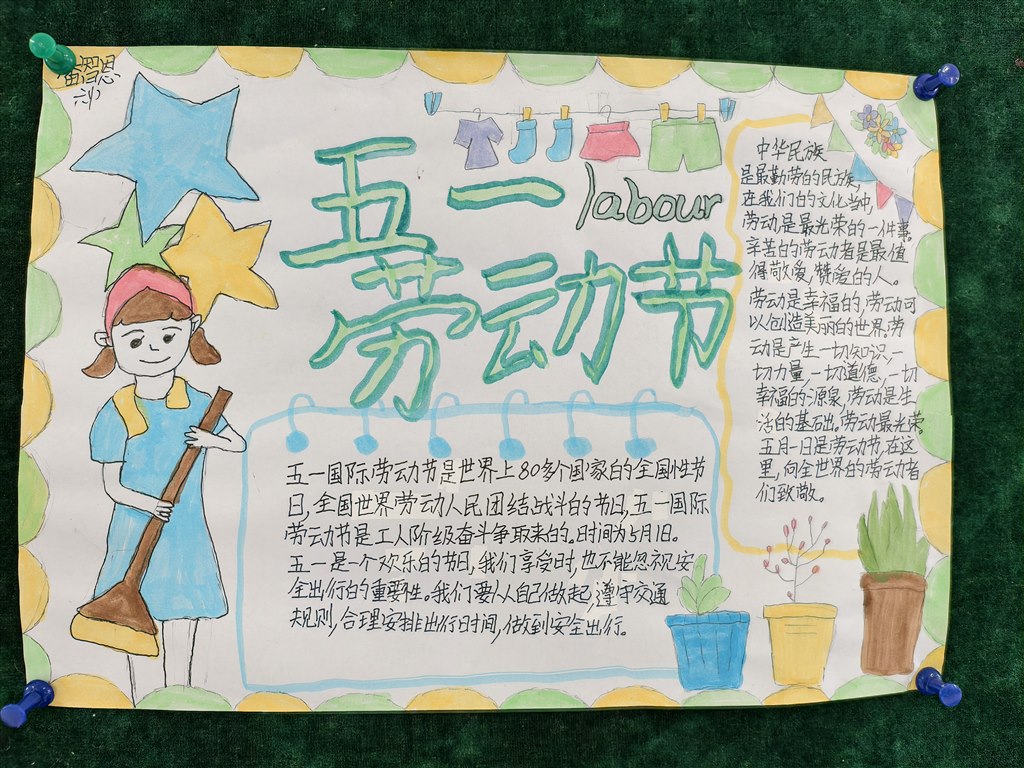 智思
五一
labour
劳动节
五一国际劳动节是世界上80多个国家的全国性节
日,全国世界劳动人民团结战斗的节日,五一国际
劳动节是工人阶级奋斗争取来的。时间为5月1日。
五一是一个欢乐的节日,我们享受时,也不能忽视安
全出行的重要性。我们要从自己做起,遵守交通
规则,合理安排出行时间,做到安全出行。
中华民族
是最勤劳的民族,
在我们的文化当中,
劳动是最光荣的一件事。
辛苦的劳动者是最值
得敬爱,赞爱的人。
劳动是幸福的,劳动可
以创造美丽的世界,劳
动是产生一切知识,一
切力量,一切道德,一切
幸福的源泉,劳动是生
活的基础。劳动最光荣。
五月一日是劳动节,在这
里,向全世界的劳动者
们致敬。